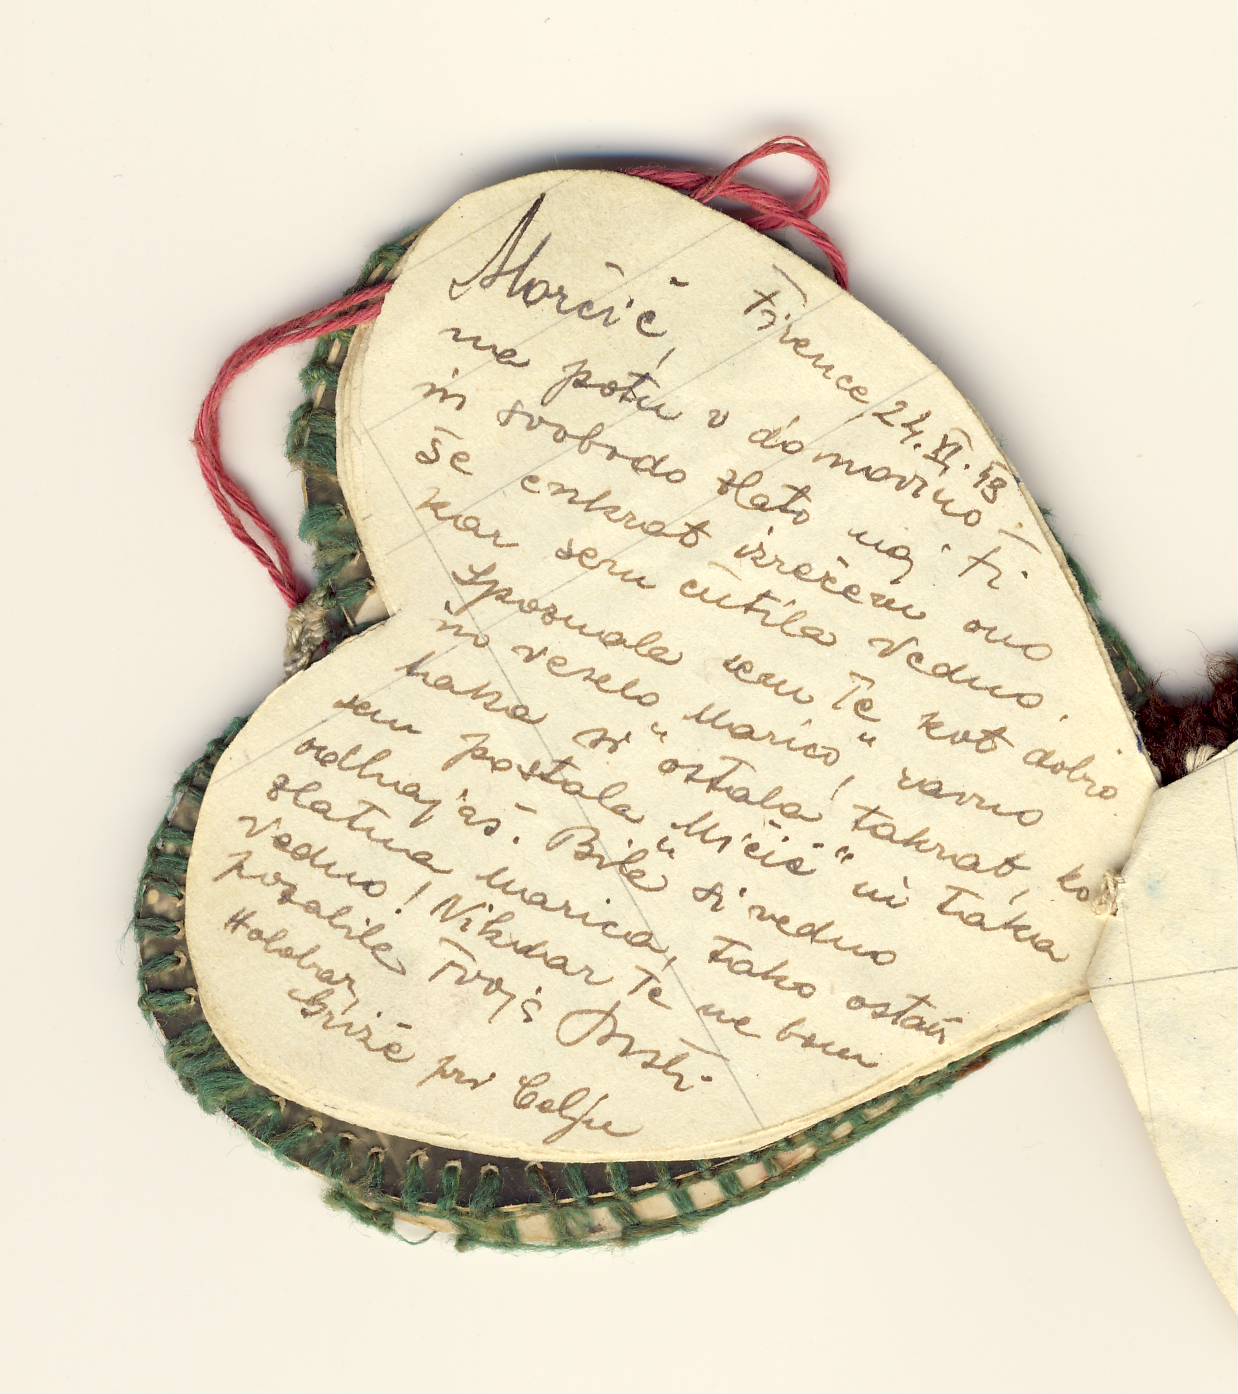 Morčič, Firence 24. XI. 43
na potu v domovino –
in svobodo zlato naj ti
še enkrat izrečem ono
kar sem čutila vedno.
Spoznala sem Te kot dobro
in veselo "Marico", ravno
taka si ostala takrat, ko
sem postala "Mičič" in taka
odhajaš. Bila si vedno
zlatna Marica, tako ostani
vedno! Nikdar Te ne bom
pozabila Tvoja
Holobar,
Griže pri Celju